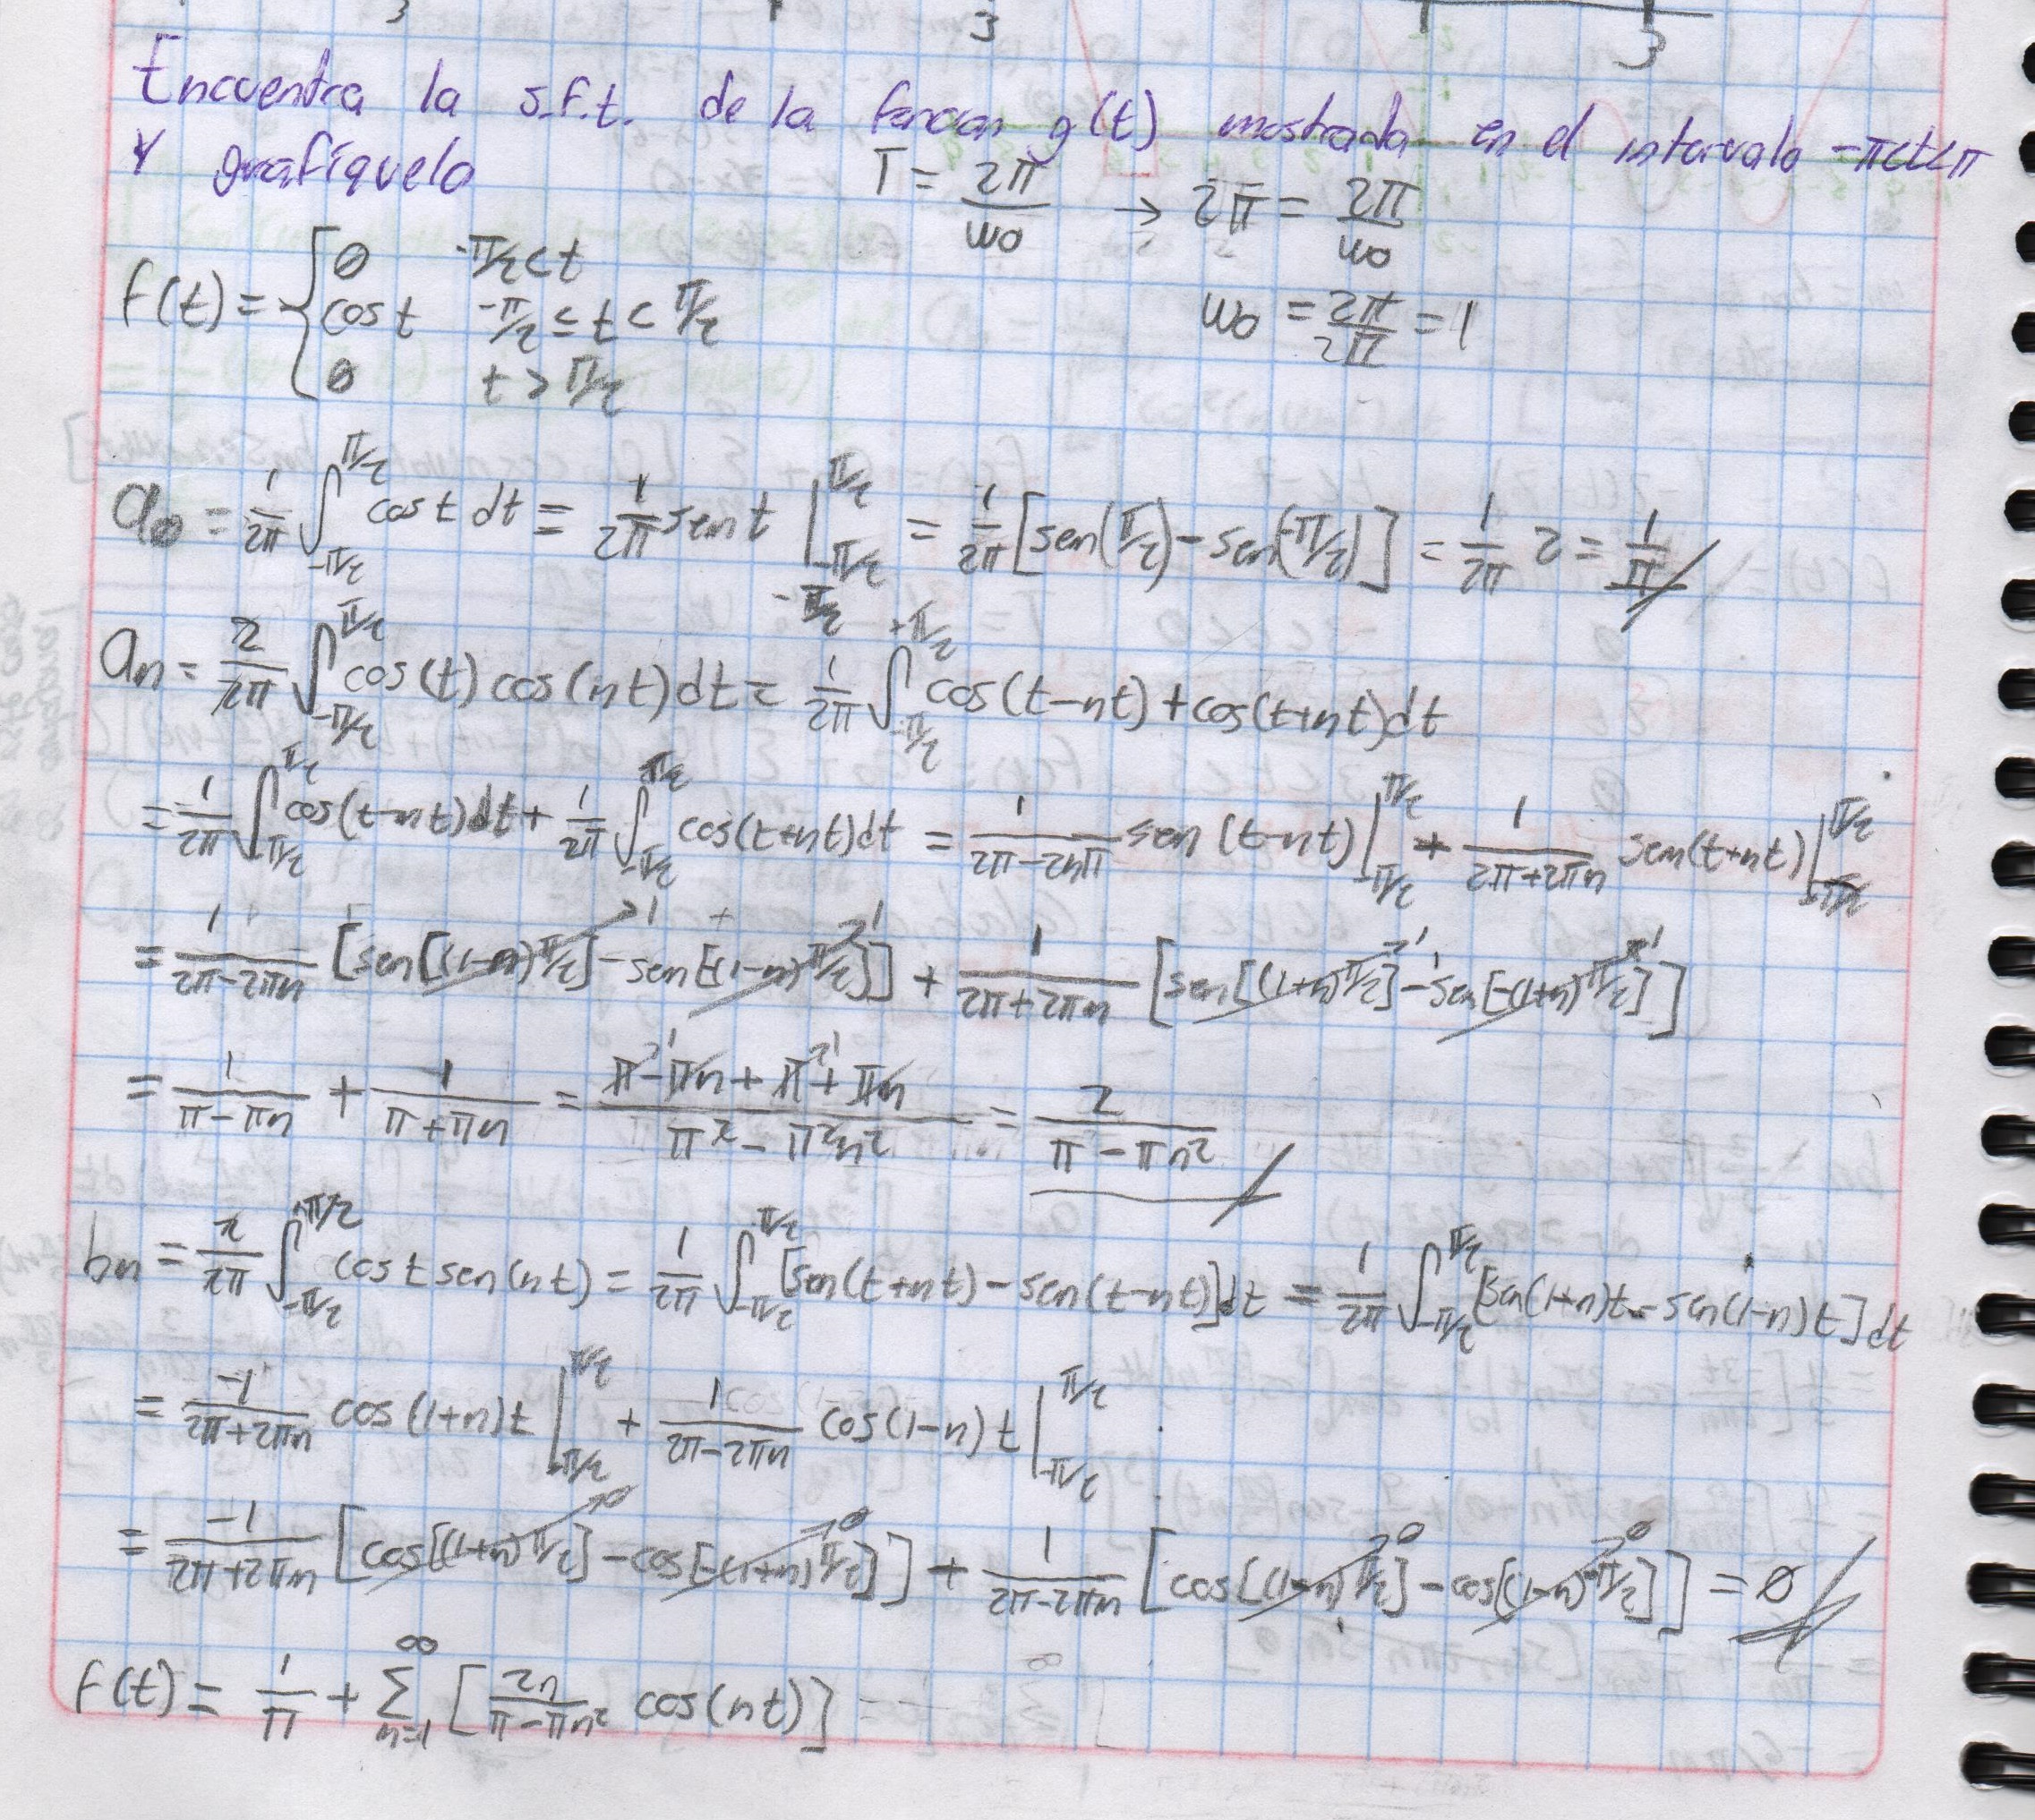 3 3 3
Encuentra la s.f.t. de la funcion g(t) mostrada en el intervalo -π<t<π
Y grafíquelo
T = 2π/ω0 → 2π = 2π/ω0
ω0 = 2π/2π = 1
f(t) = { 0 -π/2<t
cos t -π/2 ≤ t < π/2
0 t > π/2
a0 = 1/2π ∫_{-π/2}^{π/2} cos t dt = 1/2π sen t |_{-π/2}^{π/2} = 1/2π [sen(π/2) - sen(-π/2)] = 1/2π 2 = 1/π
an = 2/2π ∫_{-π/2}^{π/2} cos(t) cos(nt) dt = 1/2π ∫_{-π/2}^{+π/2} cos(t-nt) + cos(t+nt) dt
= 1/2π ∫_{-π/2}^{π/2} cos(t-nt) dt + 1/2π ∫_{-π/2}^{π/2} cos(t+nt) dt = 1/(2π-2nπ) sen (t-nt) |_{-π/2}^{π/2} + 1/(2π+2πn) sen(t+nt) |_{-π/2}^{π/2}
= 1/(2π-2πn) [sen[(1-n)π/2] - sen[-(1-n)π/2]] + 1/(2π+2πn) [sen[(1+n)π/2] - sen[-(1+n)π/2]]
= 1/(π-πn) + 1/(π+πn) = (π-πn+π+πn)/(π²-π²n²) = 2/(π-πn²)
bn = 2/2π ∫_{-π/2}^{π/2} cos t sen(nt) = 1/2π ∫_{-π/2}^{π/2} [sen(t+nt) - sen(t-nt)] dt = 1/2π ∫_{-π/2}^{π/2} [sen(1+n)t - sen(1-n)t] dt
= -1/(2π+2πn) cos (1+n)t |_{-π/2}^{π/2} + 1/(2π-2πn) cos(1-n)t |_{-π/2}^{π/2}
= -1/(2π+2πn) [cos[(1+n)π/2] - cos[-(1+n)π/2]] + 1/(2π-2πn) [cos[(1-n)π/2] - cos[(1-n)-π/2]] = 0
f(t) = 1/π + Σ_{n=1}^{∞} [2n/(π-πn²) cos(nt)]